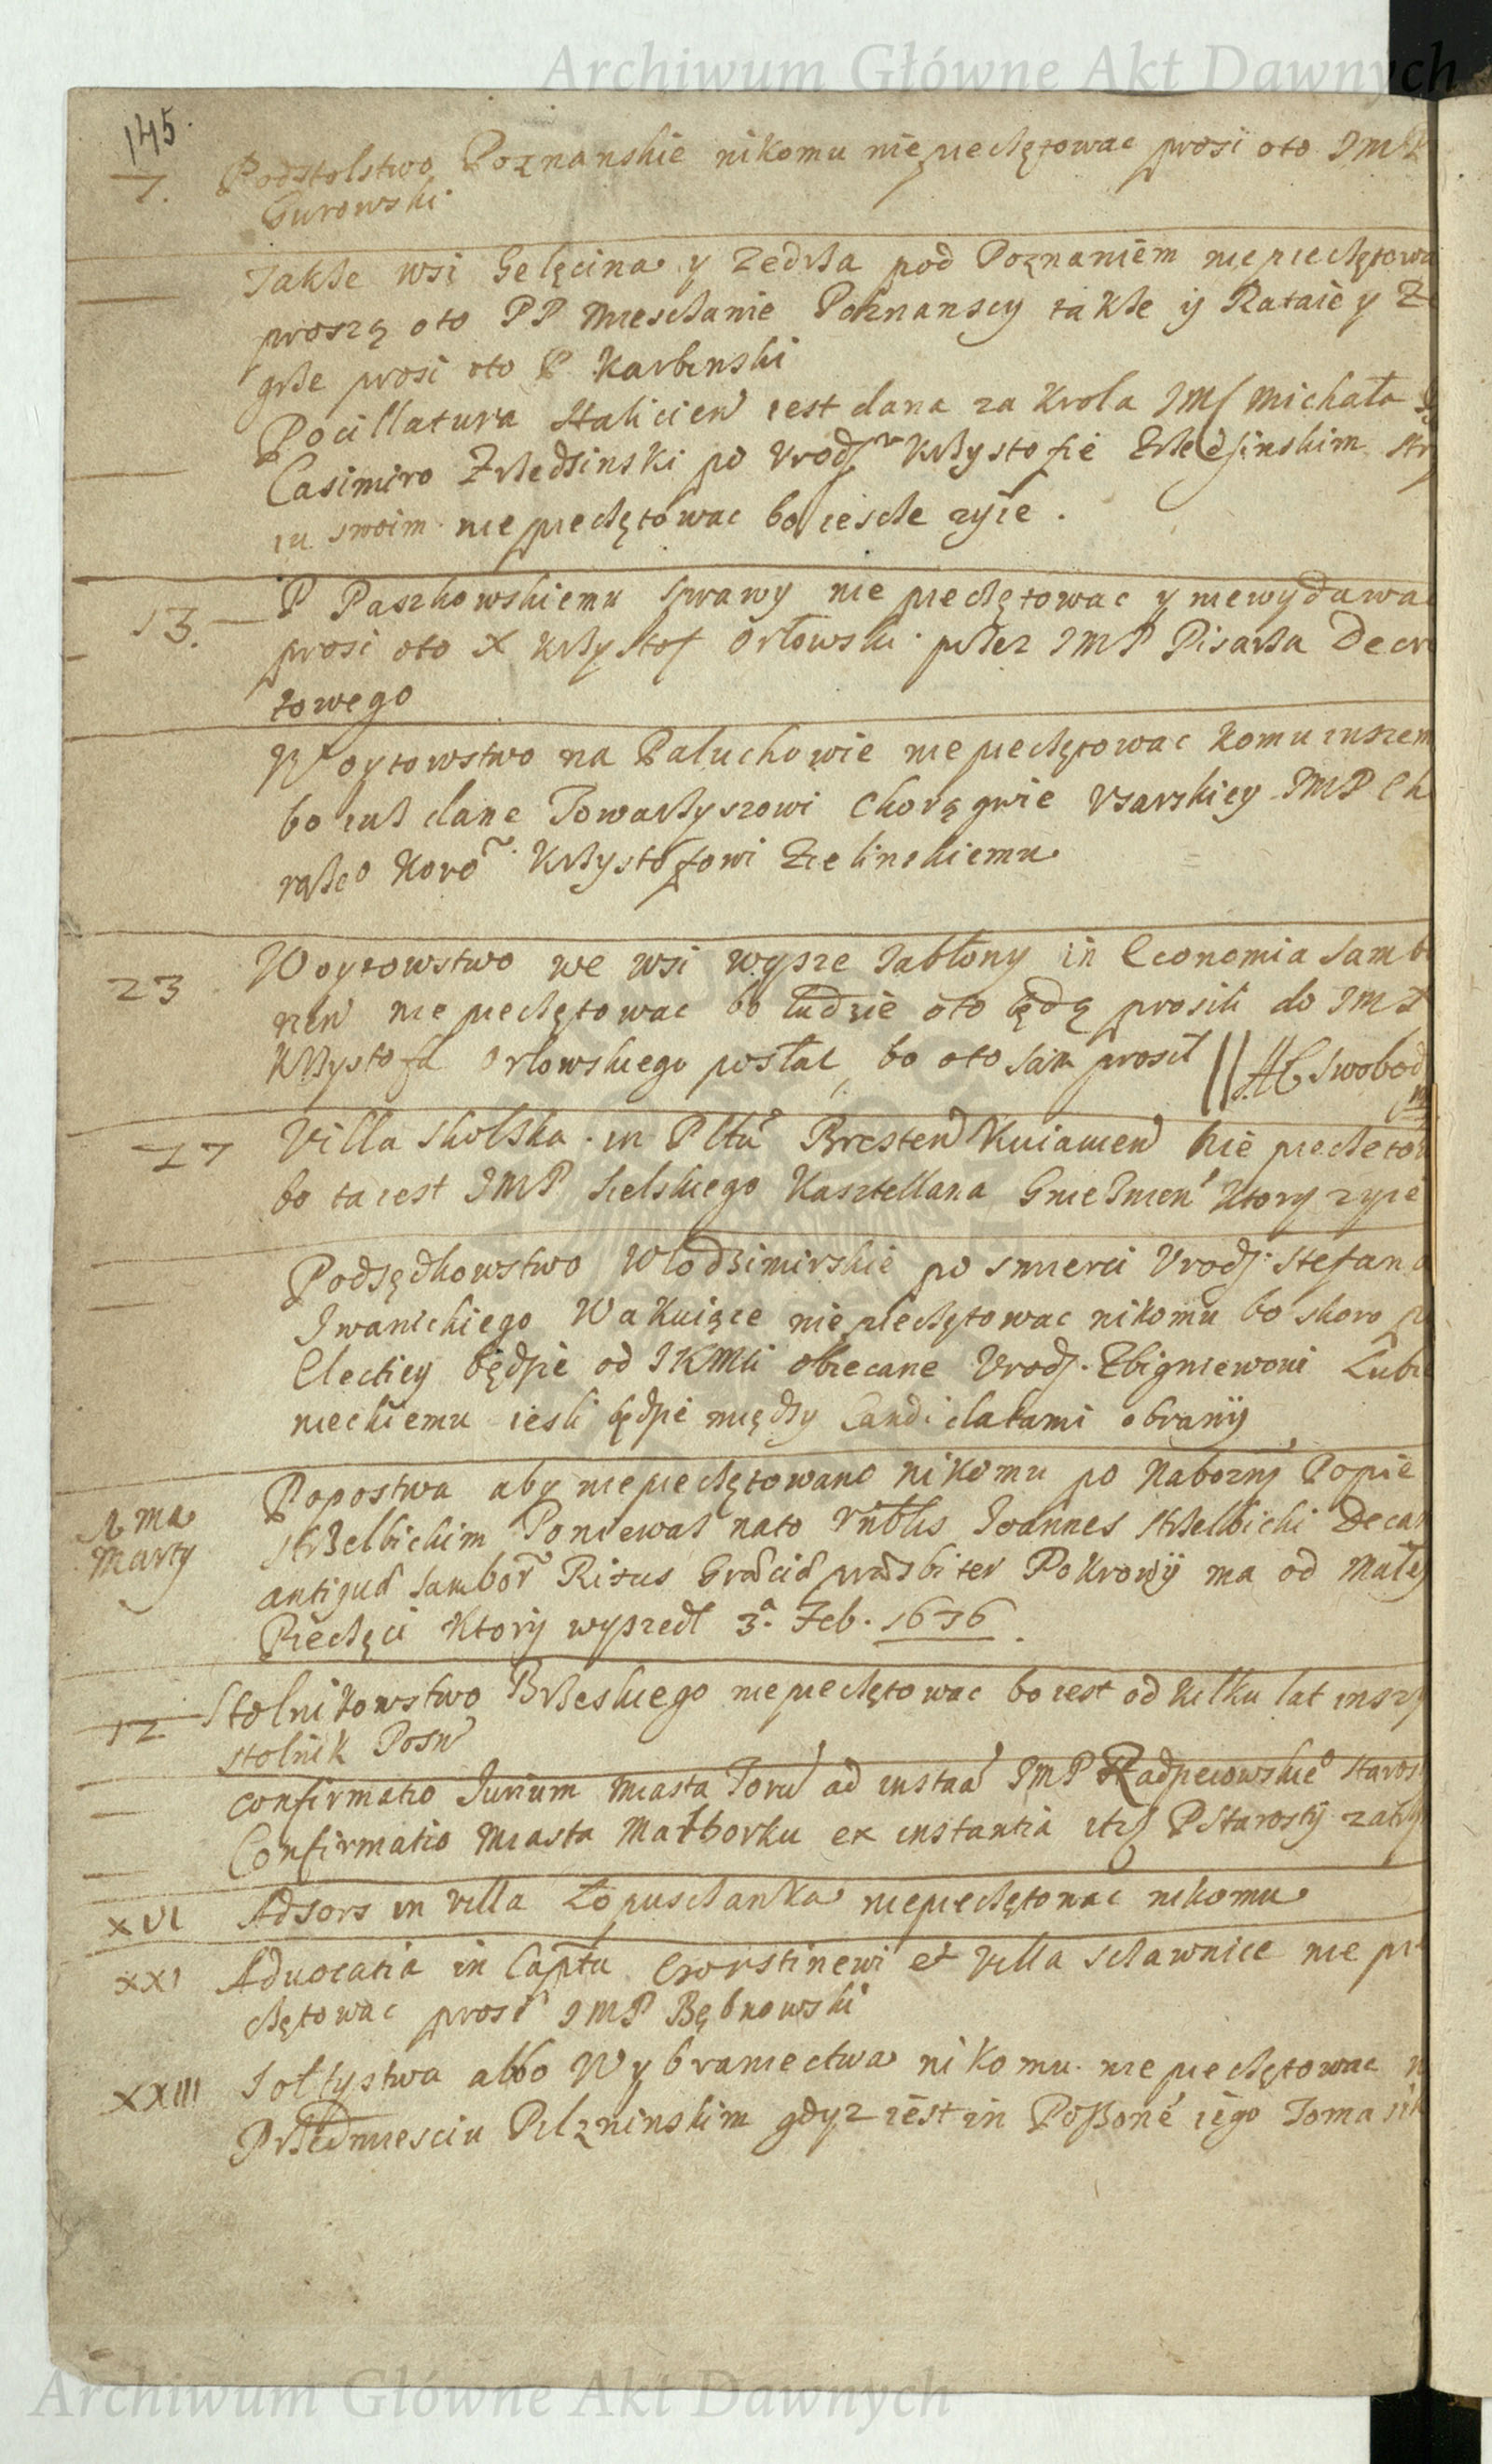 Archiwum Główne Akt Dawnych
145.
7. Podstolstwo Poznanskie nikomu nie piecżętowac prosi oto JMP
Gurowski
Także wsi Gelęcina y Zedrża pod Poznaniem nie piecżętowa
proszą oto PP Miesczanie Poznanscy także y Rataie y Ze
grże prosi oto P Karbinski
Pocillatura Halicień iest dana za Krola JM Michała
Casimiro Zrżedzinski po Vrodz Krżysztofie Zrżedzinskim Stry
iu swoim nie piecżętowac bo iescże zyie.
13. P Paszkowskiemu sprawy nie piecżętowac y niewydawac
prosi oto X Krżysztof Orłowski przez JMP Pisarża Decre
towego
Woytowstwo na Paluchowie nie piecżętowac komu inszem
bo iuż dane Towarżyszowi Chorągwie Vsarskiey JMP Cho
rążeo Koro Krżysztofowi Zielinskiemu
23 Woytowstwo we wsi wysze Jabłony in Economia Samb
rień nie piecżętowac bo ludzie oto będą prosili do JMX
Krżysztofa Orłowskiego posłac, bo oto sam prosił || AC swobod
27 Villa Skolska in Pttu Bresteń Kuiawień nie piecżętow
bo ta iest JMP Sielskiego Kasztellana Gnieznień ktory zyie
Podsędkowstwo Włodzimirskie po smierci Vrodz. Stefana
Iwanickiego Wakuiące nie piecżętowac nikomu bo skoro p
Electiey będzie od JKMci obiecane Vrodz. Zbigniewowi Lubie
nieckiemu iesli będzie między Candidatami obrany
1 ma Marty Popostwa aby nie piecżętowano nikomu po Nabozny Popie
Strżelbickim Poniewaz nato Rńdlis Ioannes Strżelbicki Decan
antiquus Sambor Ritus Graeci praesbiter Pokrowy ma od Małey
Piecżęci Ktory wyszedł 3a. Feb. 1676.
12 Stolnikowstwo Brżeskiego nie piecżętowac bo iest od kilku lat inszy
stolnik Posń
Confirmatio Jurium miasta Toruń ad instaā JMP Radzieiowskieo Staros
Confirmatio Miasta Malborku ex instantia P Starosty
XVI Adsors in villa Łopuszanka nie piecżętowac nikomu
XXI Aduocatia in Capttu Czorstinewi et Villa Scżawnice nie pie
cżętowac prosi JMP Bębnowski
XXIII Sołtystwa albo Wybraniectwa nikomu nie piecżętowac n
Przedmiesciu Pilznienskim gdyz iest in Possone iego Tomasik
Archiwum Główne Akt Dawnych